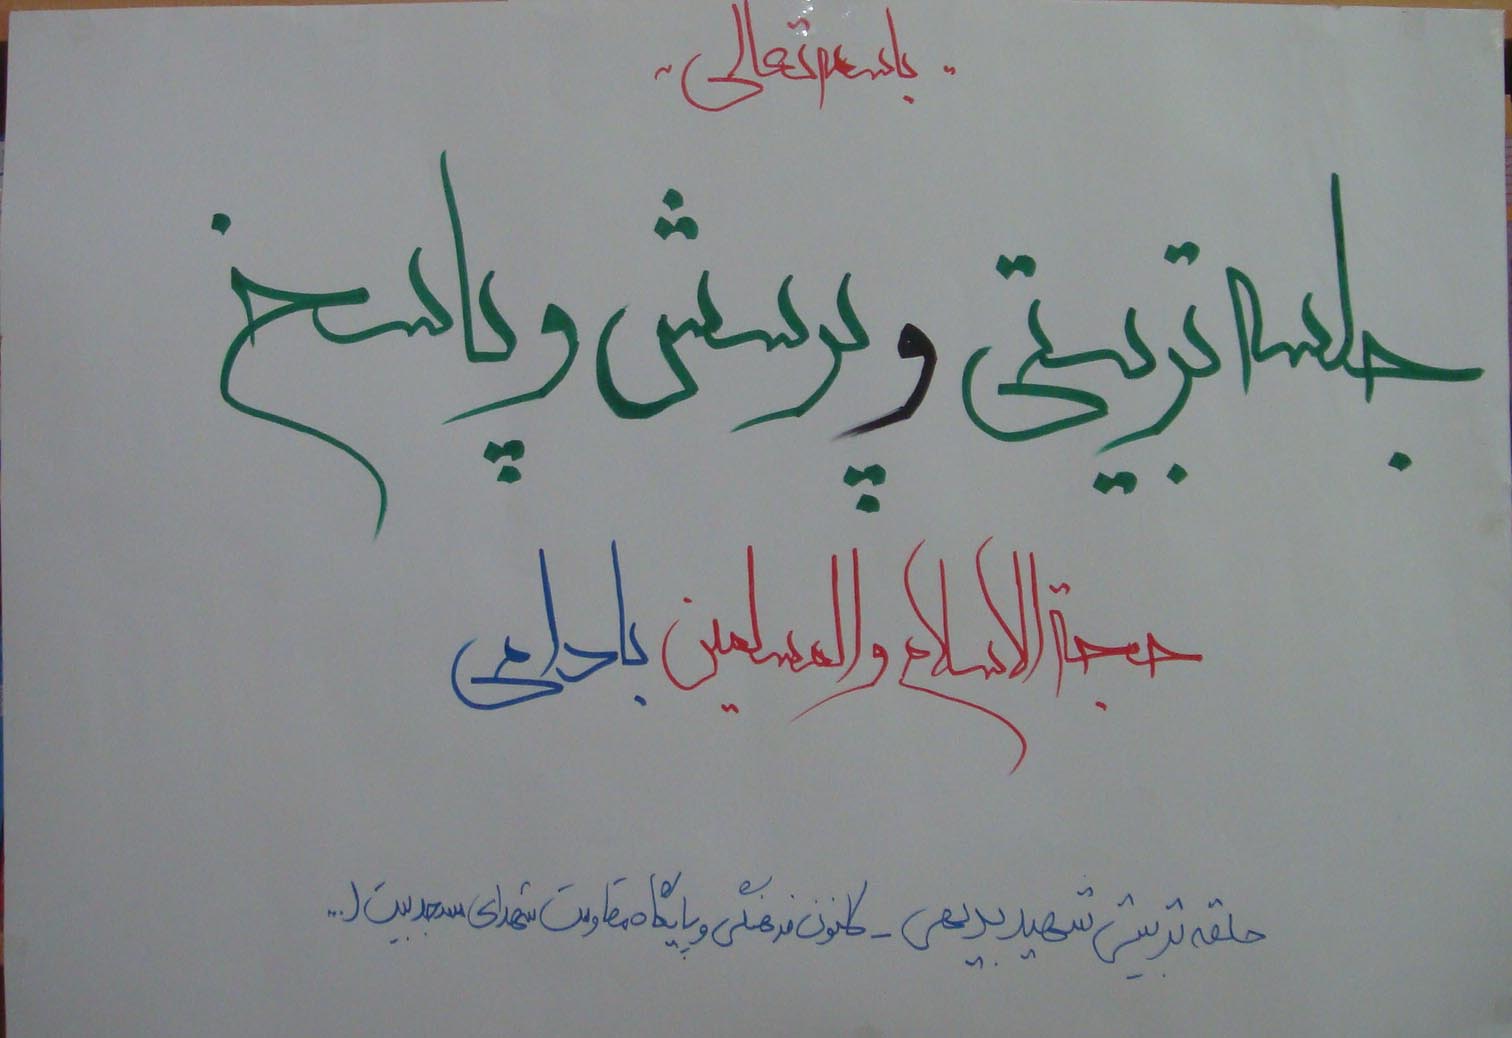 باسمه تعالی
جلسه تربیتی و پرسش و پاسخ
حجة الاسلام و المسلمین بادامی
حلقه تربیتی شهید بدیهی - کانون فرهنگی و پایگاه مقاومت شهدای مسجد بیت ا...